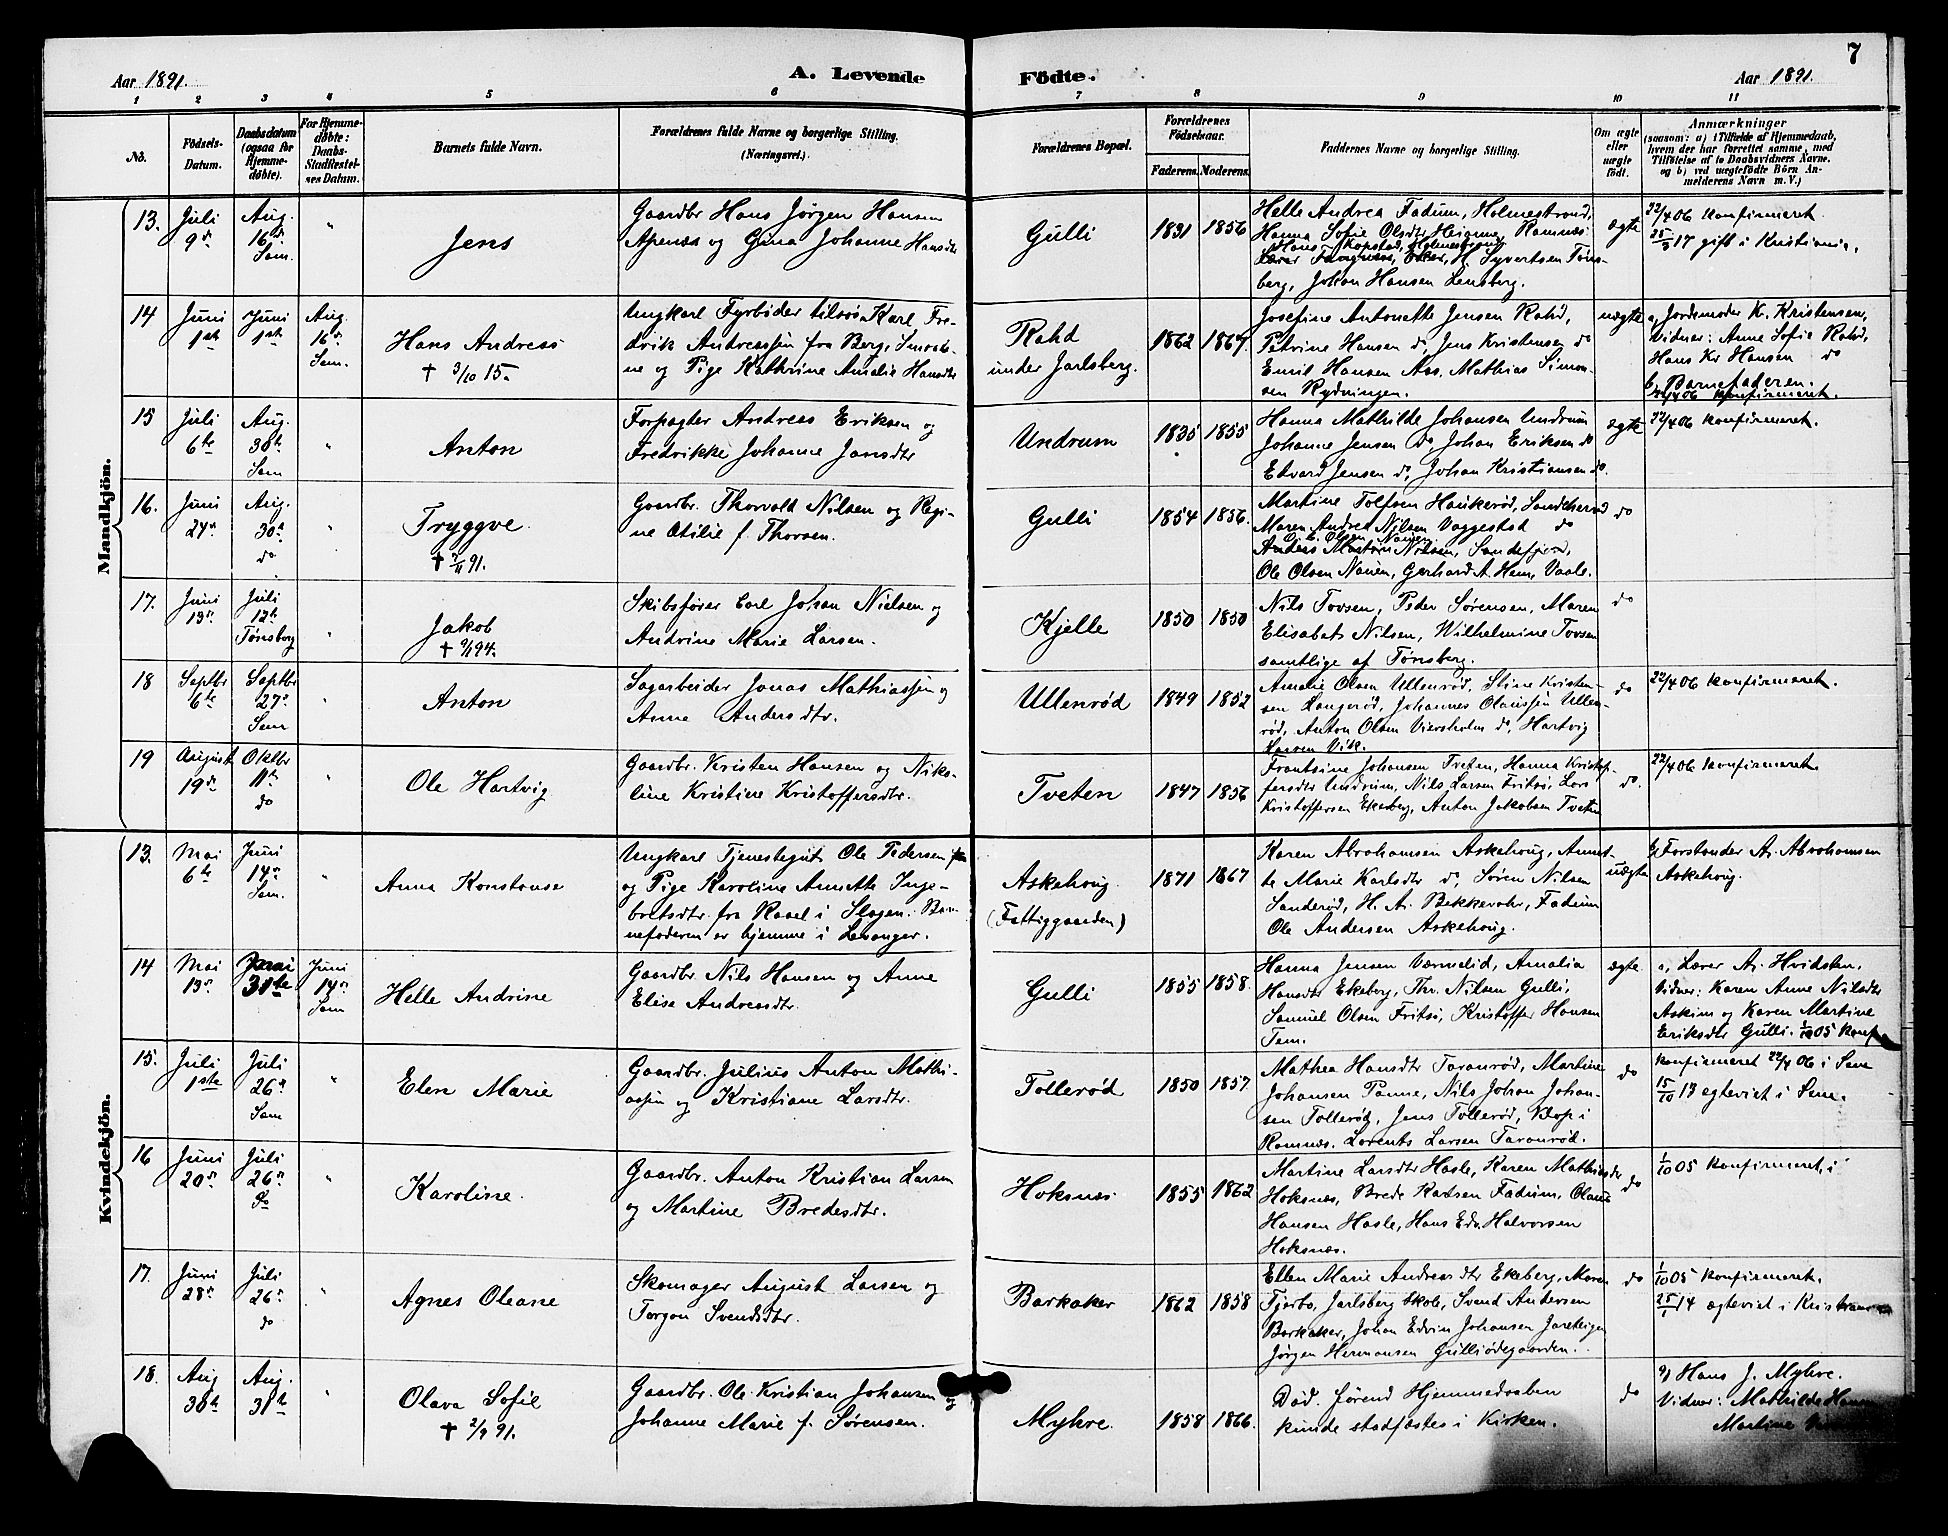 7
Aar 1891.
A. Levende Fødte.
Aar 1891.
1 2 3 4 5 6 7 8 9 10 11
No.
Fødsels-
Datum.
Daabsdatum
(ogsaa for
Hjemme-
døbte).
For Hjemme-
døbte:
Daabs-
Stadfæstel-
ses Datum.
Barnets fulde Navn.
Forældrenes fulde Navne og borgerlige Stilling.
(Næringsvei.)
Forældrenes Bopæl.
Forældrenes
Fødselsaar.
Faderens. Moderens.
Faddernes Navne og borgerlige Stilling.
Om ægte
eller
uægte
født.
Anmærkninger
(saasom: a) i Tilfælde af Hjemmedaab,
hvem der har forrettet samme, med
Tilføielse af to Daabsvidners Navne.
og b) ved uægtefødte Børn An-
melderens Navn m. V.)
Mandkjøn.
13.
Juli
9de
Aug.
16de
Sem.
"
Jens
Gaardbr Hans Jørgen Hansen
Apenæs og Gina Johanne Hansdtr
Gulli
1831
1856
Helle Andrea Fadum, Holmestrand,
Hanna Sofie Olsdtr Ramnæs
Hans Kopstad, Holmestrand
H. Syvertsen Tøns-
berg, Johan Hansen Lensberg.
ægte
22/4 06 konfirmeret.
17 gift i Kristiania.
14
Juni
1ste
Juni
1ste
Aug.
16de
Sem.
Hans Andreas
† 3/10 15.
Ungkarl Fyrbøder tilsøs Karl Fre-
drik Andreassen fra Berg, Smaale-
ne og Pige Kathrine Amalie Hansdtr
Rahd
under Jarlsberg.
1862
1867.
Josefine Antonette Jensen Rahd,
Petrine Hansen do, Jens Kristensen do
Emil Hansen Aas. Mathias Simon-
sen Rydningen.
uægte
a, Jordemoder K. Kristensen,
Vidner: Anne Sofie Rahd,
Hans Kr Hansen do
b, Barnefaderen.
22/4 06 konfirmeret.
15
Juli
6te
Aug.
30te
Sem
"
Anton
Forpagter Andreas Eriksen og
Fredrikke Johanne Jansdtr
Undrum
1835
1855
Hanna Mathilde Johansen Undrum
Johanne Jensen do Johan Eriksen do
Edvard Jensen do, Johan Kristiansen do.
ægte
22/4 06 konfirmeret.
16.
Juni
24de
Aug.
30te
do
"
Tryggve
† 91.
Gaardbr. Thorvald Nilsen og Regi-
ne Otilie f. Thorsen.
Gulli
1854
1856.
Martine Tolfsen Haukerød, Sandeherred
Maren Andrea Nilsen Vaggestad do
O. E. Olsen Nauen.
Anders Martin Nilsen, Sandefjord,
Ole Olsen Nauen, Gerhard A. Hem, Vaale.
do
17.
Juni
13de
Juli
12te
Tønsberg
"
Jakob
Skibsfører Carl Johan Nielsen og
Andrine Marie Larsen.
Kjelle
1850
1850
Nils Tovsen, Peder Sørensen, Maren
Elisabet Nilsen, Wilhelmine Tovsen
samtlige af Tønsberg.
do
18
Septbr
6te
Septbr
27de
Sem
"
Anton
Sagarbeider Jonas Mathiassen og
Anne Andersdtr.
Ullenrød
1849
1852
Amalie Olsen Ullenrød, Stine Kristen-
sen Langerød, Johannes Olaussen Ullen-
rød, Anton Olsen Viersholm do, Hartvig
Larsen Vik.
do
22/4 06 konfirmeret.
19
August
19de
Oktbr
11te
do
"
Ole Hartvig
Gaardbr. Kristen Hansen og Niko-
line Kristine Kristoffersdtr.
Tveten
1847
1856
Frantsine Johansen Tveten, Hanna Kristof-
fersdtr Undrum, Nils Larsen Fritsø, Lars
Kristoffersen Ekeberg, Anton Jakobsen Tveten
do.
22/4 06 konfirmeret.
Kvindekjøn.
13.
Mai
6te
Juni
14de
Sem.
"
Anna Konstanse
Ungkarl Tjenestegut Ole Pedersen
og Pige Karoline Annette Inge-
bretsdtr. fra Rasel i Slagen. Bar-
nefaderen er hjemme i Levanger.
Askehoug.
(Fattiggaarden)
1871
1867
Karen Abrahamsen Askehoug, Annet-
te Marie Karlsdtr do, Søren Nilsen
Sanderød, H. A. Bekkevahr, Fadum
Ole Andersen Askehoug.
uægte
b, Forstander A. Abrahamsen
Askehoug.
14
Mai
13de
Mai
31te
Juni
14de
Sem
Helle Andrine
Gaardbr. Nils Hansen og Anne
Elise Andreasdtr.
Gulli
1855
1858.
Hanna Jensen Værnelid, Amalia
Hansdtr Ekeberg, Thr. Nilsen Gulli,
Samuel Olsen Fritsø, Kristoffer Hansen
Tem.
ægte
a, Lærer A. Hvidsten.
Vidner: Karen Anne Nilsdtr
Askim og Karen Martine
Eriksdtr Gulli. 1/10 05 konf
15.
Juli
1ste
Juli
26de
Sem
"
Elen Marie
Gaardbr. Julius Anton Mathi-
assen og Kristiane Larsdtr.
Tollerød
1850
1857
Mathea Hansdtr Taranrød, Martine
Johansen Panne, Nils Johan Johan-
sen Tollerød, Jens Tollerød, Klop i
Ramnæs. Lorents Larsen Taranrød.
do
Konfirmeret 22/4 06 i Sem
15/10 13 egteviet i Sem.
16
Juni
20de
Juli
26de
do
"
Karoline.
Gaardbr. Anton Kristian Larsen
og Martine Bredesdtr.
Hoksnæs
1855
1862
Martine Larsdtr Hasle, Karen Mathisdtr
Hoksnæs, Brede Karlsen Fadum, Olaus
Hansen Hasle, Hans Edv. Halvorsen
Hoksnæs.
do
1/10 05 konfirmeret i
17.
Juni
28de
Juli
26de
do
"
Agnes Oleane
Skomager August Larsen og
Torgon Svendsdtr.
Barkaker
1862
1858
Ellen Marie Andreasdtr Ekeberg, Maren
Fjerbo, Jarlsberg Skole, Svend Andersen
Barkaker, Johan Edvin Johansen Jareteigen
Jørgen Hermansen Gulliødegaarden.
do
1/10 05 konfirmeret.
25/1 14 egteviet i Kristiania
18.
Aug
30te
Aug.
31te
"
Olava Sofie
† 2/9 91.
Gaardbr. Ole Kristian Johansen og
Johanne Marie f. Sørensen.
Myhre.
1858
1866.
Død. førend Hjemmedaaben
kunde stadfæstes i Kirken.
do
a) Hans J. Myhre.
Vidner: Mathilde
Martine